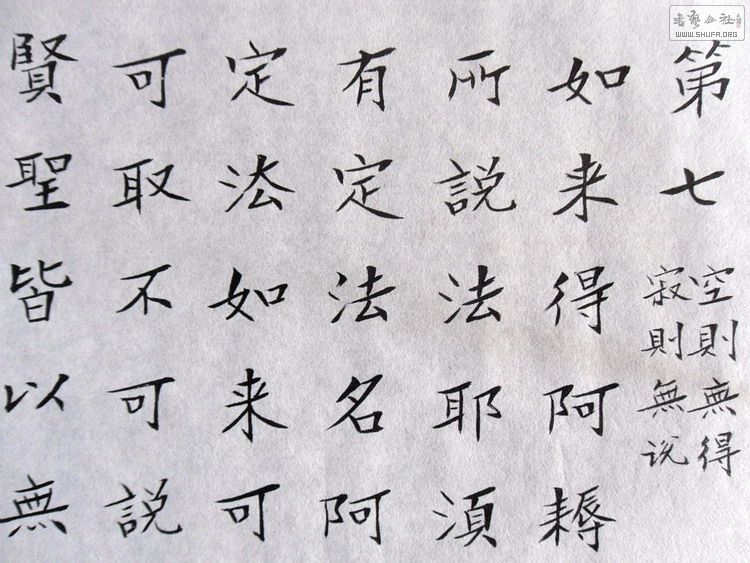 第七
空則無得
寂則無说
如来得阿耨
所説法耶湏
有定法名阿
定法如来可
可取不可説
賢聖皆以無
書藝公社
WWW.SHUFA.ORG